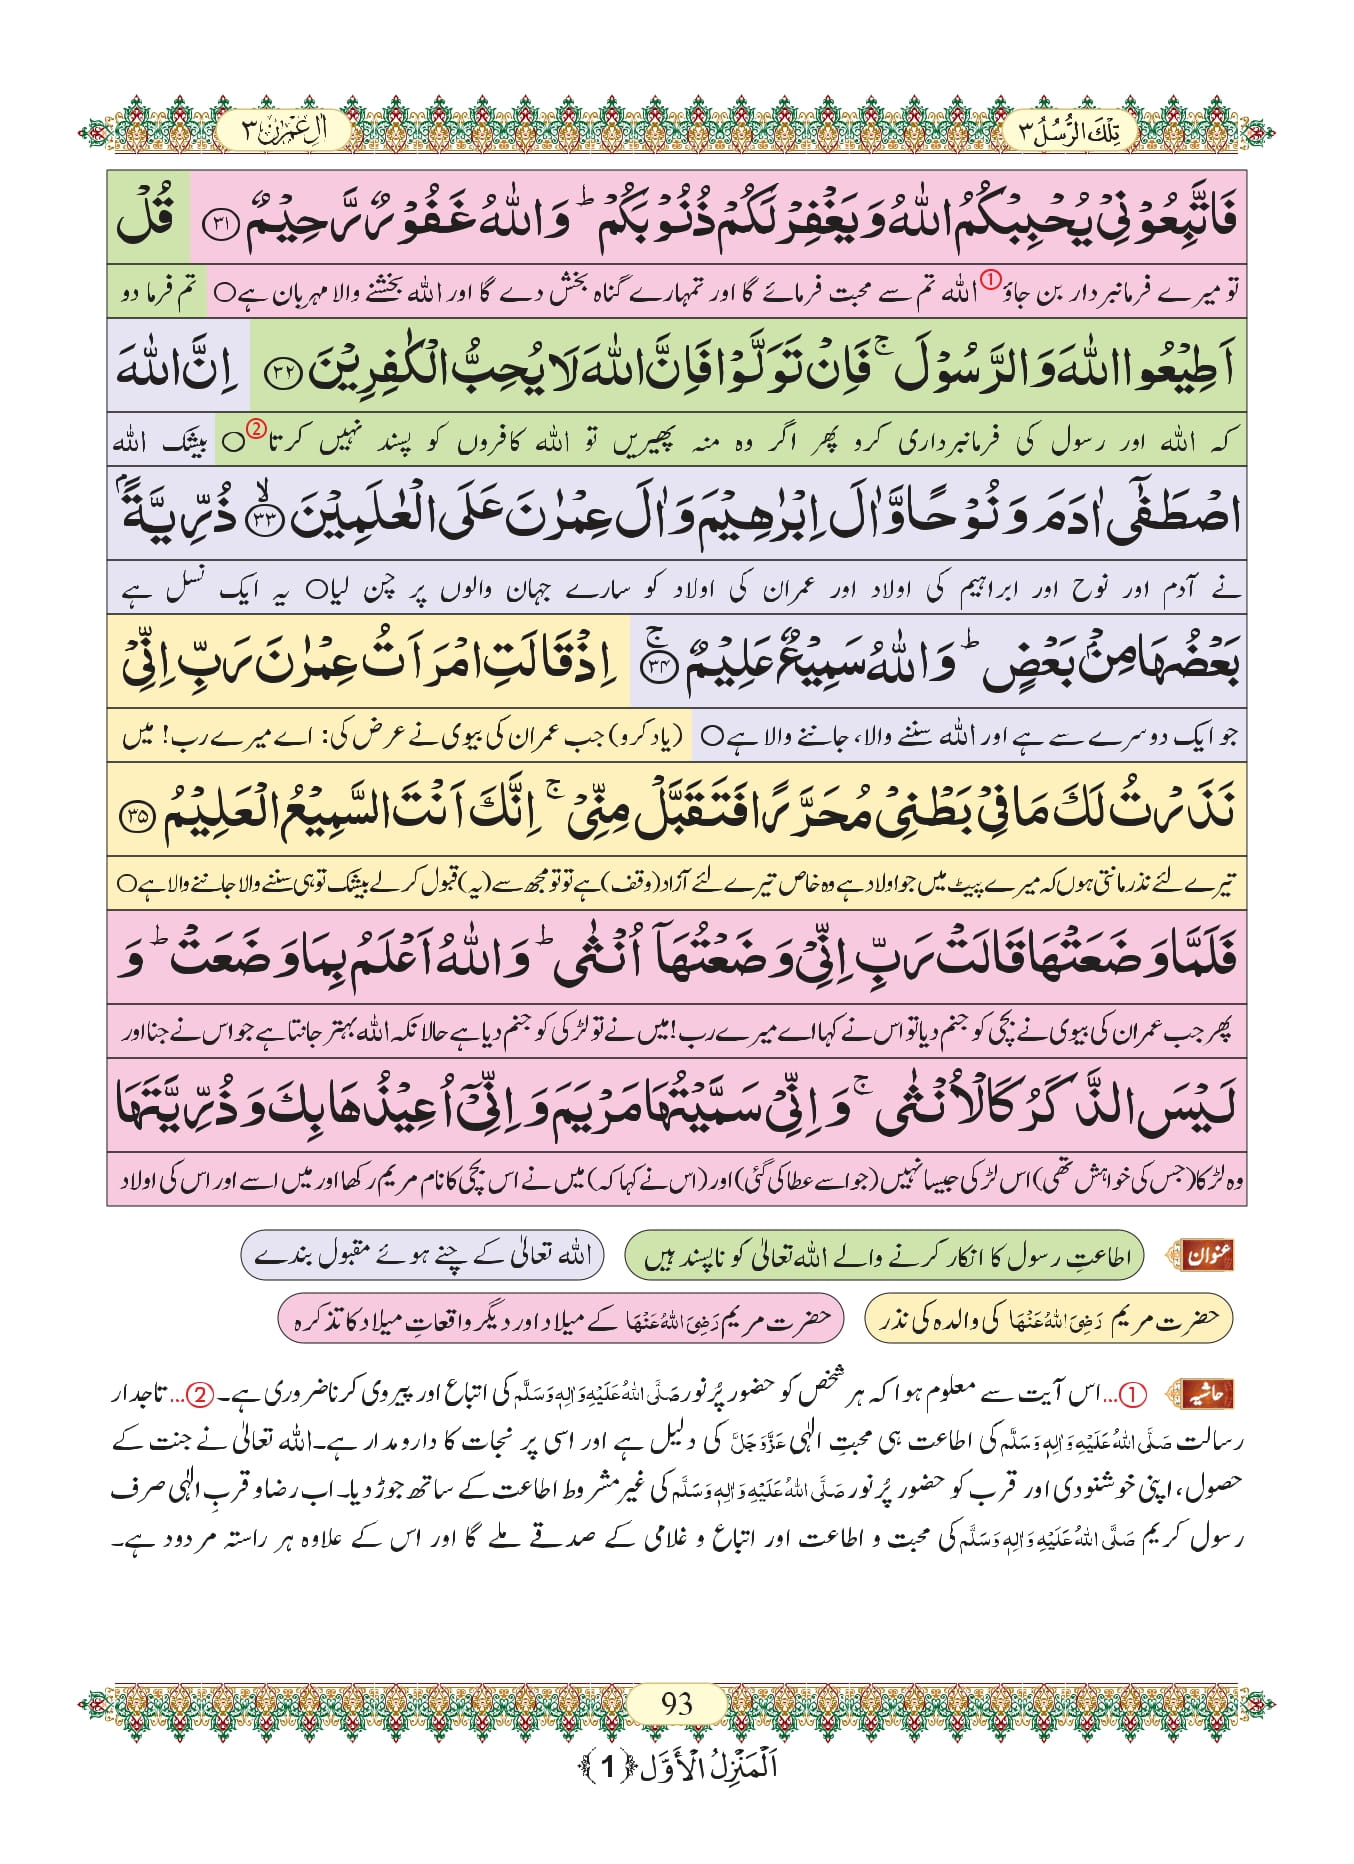 تِلْكَ الرُّسُلُ ۳
اٰلِ عِمْرٰنَ ۳
فَاتَّبِعُوْنِیْ یُحْبِبْكُمُ اللّٰهُ وَ یَغْفِرْ لَكُمْ ذُنُوْبَكُمْؕ وَ اللّٰهُ غَفُوْرٌ رَّحِیْمٌ ﴿۳۱﴾ قُلْ
تو میرے فرمانبردار بن جاؤ① اللہ تم سے محبت فرمائے گا اور تمہارے گناہ بخش دے گا اور اللہ بخشنے والا مہربان ہے○ تم فرما دو
اَطِیْعُوا اللّٰهَ وَ الرَّسُوْلَۚ فَاِنْ تَوَلَّوْا فَاِنَّ اللّٰهَ لَا یُحِبُّ الْكٰفِرِیْنَ ﴿۳۲﴾ اِنَّ اللّٰهَ
کہ اللہ اور رسول کی فرمانبرداری کرو پھر اگر وہ منہ پھیریں تو اللہ کافروں کو پسند نہیں کرتا②○ بیشک اللہ
اصْطَفٰۤى اٰدَمَ وَ نُوْحًا وَّ اٰلَ اِبْرٰهِیْمَ وَ اٰلَ عِمْرٰنَ عَلَى الْعٰلَمِیْنَۙ ﴿۳۳﴾ ذُرِّیَّةًۢ
نے آدم اور نوح اور ابراہیم کی اولاد اور عمران کی اولاد کو سارے جہان والوں پر چن لیا○ یہ ایک نسل ہے
بَعْضُهَا مِنْۢ بَعْضٍؕ وَ اللّٰهُ سَمِیْعٌ عَلِیْمٌۚ ﴿۳۴﴾ اِذْ قَالَتِ امْرَاَتُ عِمْرٰنَ رَبِّ اِنِّیْ
جو ایک دوسرے سے ہے اور اللہ سننے والا، جاننے والا ہے○ (یاد کرو) جب عمران کی بیوی نے عرض کی: اے میرے رب! میں
نَذَرْتُ لَكَ مَا فِیْ بَطْنِیْ مُحَرَّرًا فَتَقَبَّلْ مِنِّیْۚ اِنَّكَ اَنْتَ السَّمِیْعُ الْعَلِیْمُ ﴿۳۵﴾
تیرے لئے نذر مانتی ہوں کہ میرے پیٹ میں جو اولاد ہے وہ خاص تیرے لئے آزاد (وقف) ہے تو تو مجھ سے (یہ) قبول کرلے بیشک تو ہی سننے والا جاننے والا ہے○
فَلَمَّا وَضَعَتْهَا قَالَتْ رَبِّ اِنِّیْ وَضَعْتُهَاۤ اُنْثٰىؕ وَ اللّٰهُ اَعْلَمُ بِمَا وَضَعَتْؕ وَ
پھر جب عمران کی بیوی نے بچی کو جنم دیا تو اس نے کہا اے میرے رب! میں نے تو لڑکی کو جنم دیا ہے حالانکہ اللہ بہتر جانتا ہے جو اس نے جنا اور
لَیْسَ الذَّكَرُ كَالْاُنْثٰىۚ وَ اِنِّیْ سَمَّیْتُهَا مَرْیَمَ وَ اِنِّیْۤ اُعِیْذُهَا بِكَ وَ ذُرِّیَّتَهَا
وہ لڑکا (جس کی خواہش تھی) اس لڑکی جیسا نہیں (جو اسے عطا کی گئی) اور (اس نے کہا کہ) میں نے اس بچی کا نام مریم رکھا اور میں اسے اور اس کی اولاد
عنوان اطاعتِ رسول کا انکار کرنے والے اللہ تعالیٰ کو ناپسند ہیں اللہ تعالیٰ کے چنے ہوئے مقبول بندے
حضرت مریم رَضِیَ اللہُ عَنْہَا کی والدہ کی نذر حضرت مریم رَضِیَ اللہُ عَنْہَا کے میلاد اور دیگر واقعاتِ میلاد کا تذکرہ
حاشیہ ①... اس آیت سے معلوم ہوا کہ ہر شخص کو حضور پُرنور صَلَّی اللہُ عَلَیْہِ وَاٰلِہٖ وَسَلَّم کی اتباع اور پیروی کرنا ضروری ہے۔ ②... تاجدار
رسالت صَلَّی اللہُ عَلَیْہِ وَاٰلِہٖ وَسَلَّم کی اطاعت ہی محبتِ الٰہی عَزَّوَجَلَّ کی دلیل ہے اور اسی پر نجات کا دارومدار ہے۔ اللہ تعالیٰ نے جنت کے
حصول، اپنی خوشنودی اور قرب کو حضور پُرنور صَلَّی اللہُ عَلَیْہِ وَاٰلِہٖ وَسَلَّم کی غیر مشروط اطاعت کے ساتھ جوڑ دیا۔ اب رضا و قربِ الٰہی صرف
رسول کریم صَلَّی اللہُ عَلَیْہِ وَاٰلِہٖ وَسَلَّم کی محبت و اطاعت اور اتباع و غلامی کے صدقے ملے گا اور اس کے علاوہ ہر راستہ مردود ہے۔
93
اَلْمَنْزِلُ الْاَوَّل ﴿1﴾